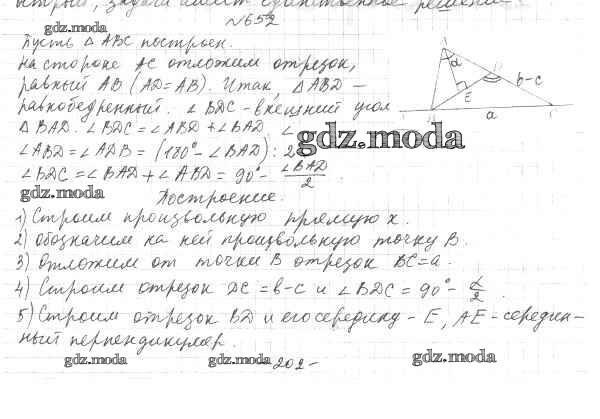 острый, задача имеет единственное решение.
N652
gdz.moda
Пусть △ABC построен.
На стороне AC отложим отрезок,
равный AB (AD=AB). Итак, △ABD –
равнобедренный. ∠BDC - внешний угол
△BAD. ∠BDC = ∠ABD + ∠BAD. ∠
∠ABD = ∠ADB = (180° - ∠BAD) : 2
gdz.moda
∠BDC = ∠BAD + ∠ABD = 90° - ∠BAD/2.
gdz.moda
Построение:
1) Строим произвольную прямую x.
2) Обозначим на ней произвольную точку B.
3) Отложим от точки B отрезок BC=a.
4) Строим отрезок DC = b-c и ∠BDC = 90° - α/2.
5) Строим отрезок BD и его середину - E, AE - середин-
ный перпендикуляр.
gdz.moda
gdz.moda
- 202 -
gdz.moda
α
b-c
E
a